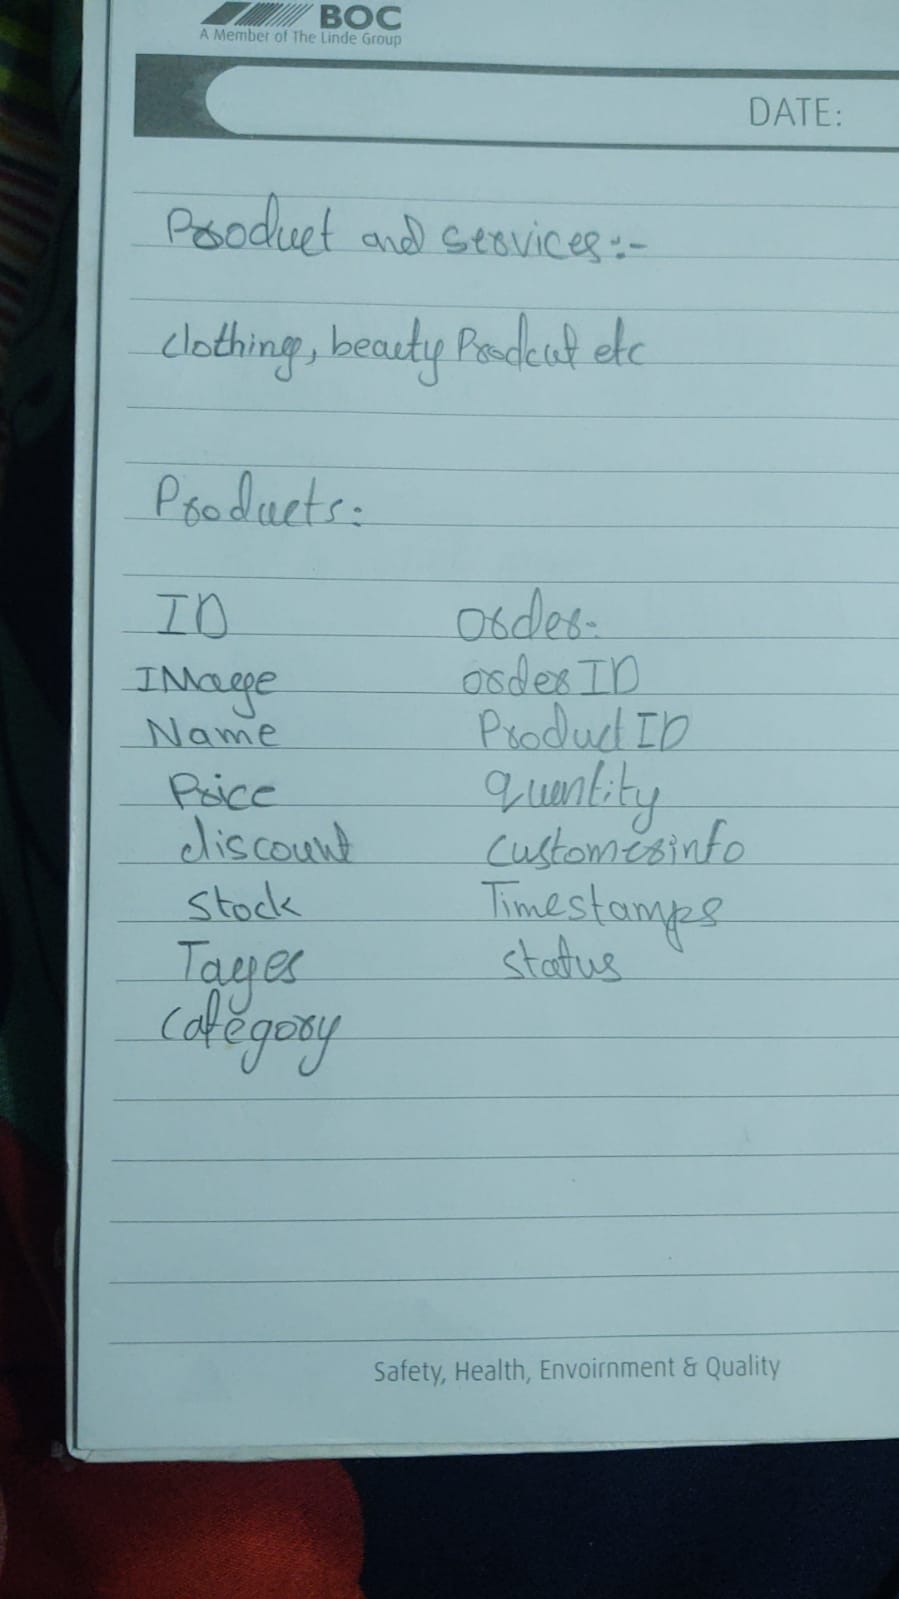 BOC
A Member of The Linde Group
DATE:
Product and services:-
clothing, beauty Prodcut etc
Products:
ID
IMage
Name
Price
discount
Stock
Tages
Category
order:
order ID
Product ID
quentity
customerinfo
Timestamps
status
Safety, Health, Envoirnment & Quality